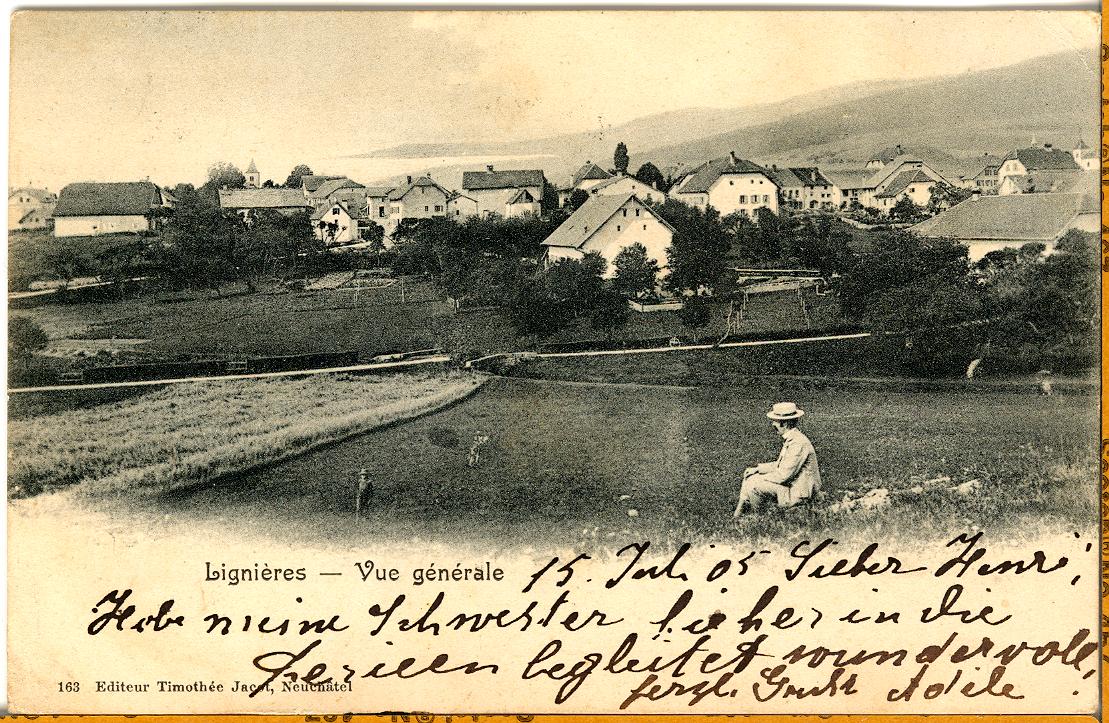 Lignières — Vue générale
15. Juli 05 Lieber Henri,
Habe meine Schwester hieher in die
Ferieen begleitet wundervoll!
herzl. Gruss Adèle
163 Editeur Timothée Jacot, Neuchâtel